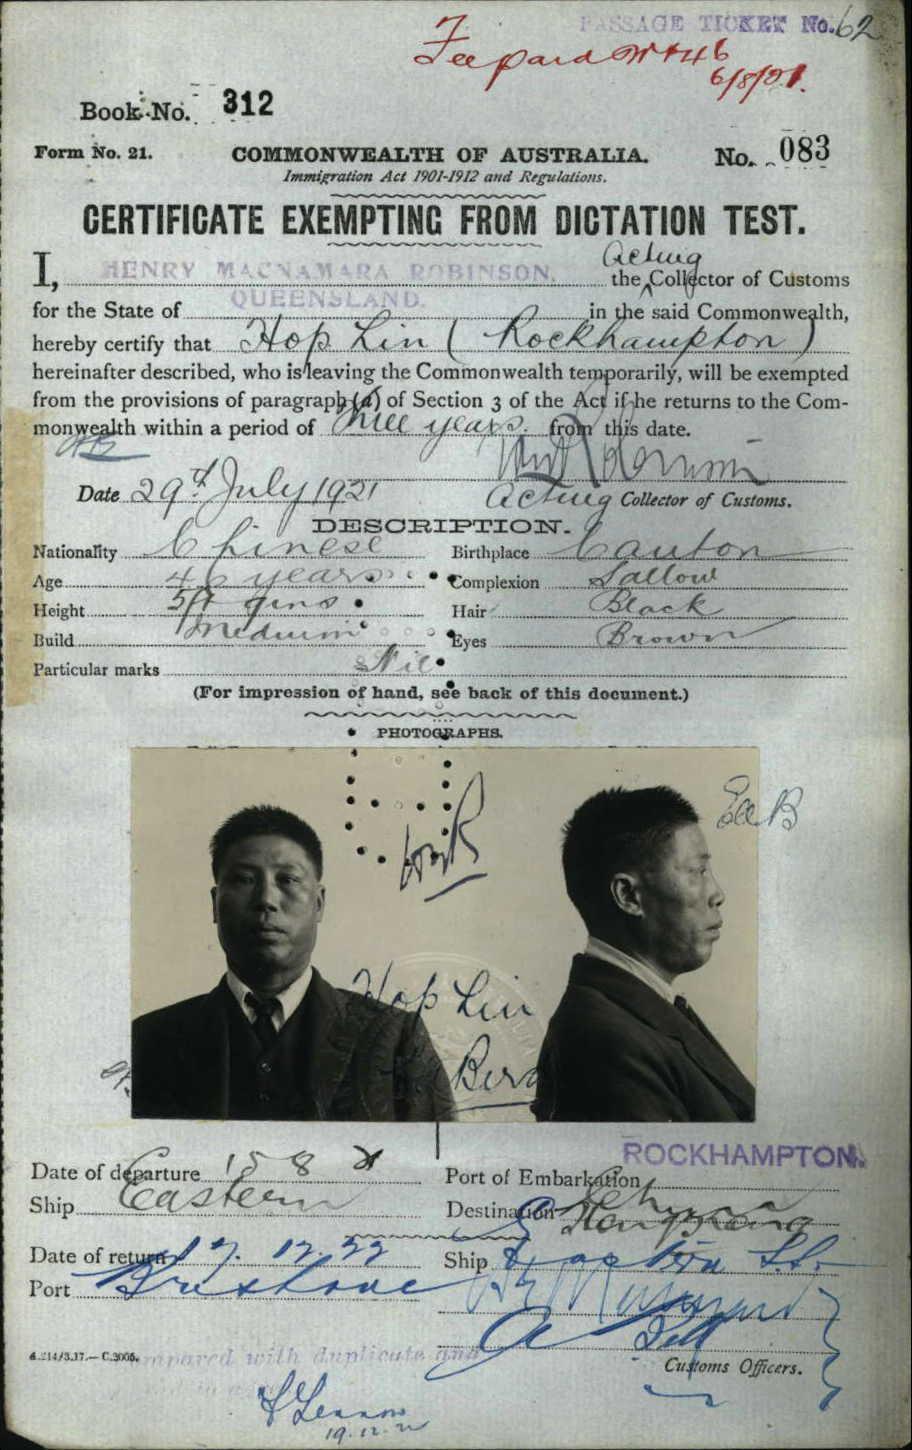 PASSAGE TICKET No. 62
Fee paid
6/8/21.
Book No. 312
Form No. 21.
COMMONWEALTH OF AUSTRALIA.
No. 083
Immigration Act 1901-1912 and Regulations.
CERTIFICATE EXEMPTING FROM DICTATION TEST.
I, HENRY MACNAMARA ROBINSON, the Acting Collector of Customs
for the State of QUEENSLAND. in the said Commonwealth,
hereby certify that Hop Lin (Rockhampton)
hereinafter described, who is leaving the Commonwealth temporarily, will be exempted
from the provisions of paragraph (a) of Section 3 of the Act if he returns to the Com-
monwealth within a period of Three years from this date.
Date 29th July 1921
Acting Collector of Customs.
DESCRIPTION.
Nationality Chinese
Birthplace Canton
Age 46 years
Complexion Sallow
Height 5ft 7ins
Hair Black
Build Medium
Eyes Brown
Particular marks Nil
(For impression of hand, see back of this document.)
PHOTOGRAPHS.
Hop Lin
ROCKHAMPTON.
Date of departure 15 8 21
Port of Embarkation
Ship Eastern
Destination Hong Kong
Date of return 17. 12. 22
Ship
Port Brisbane
Customs Officers.
Compared with duplicate and
19.12.22